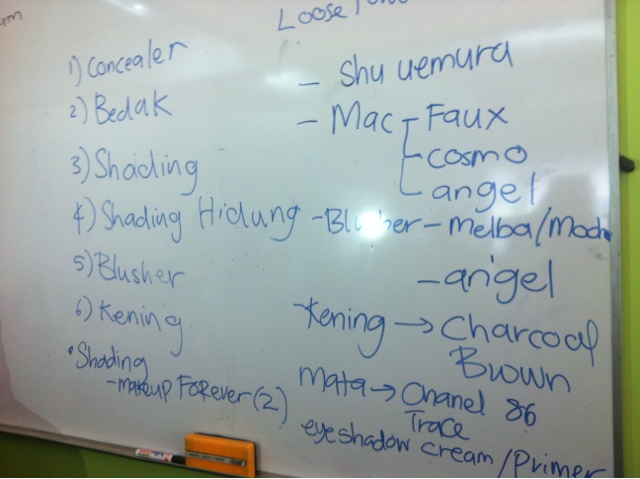 Loose
1) Concealer
2) Bedak
3) Shading
4) Shading Hidung
5) Blusher
6) Kening
• Shading
- makeup Forever (2)
- Shu uemura
- Mac - Faux
- cosmo
- angel
- Blusher - melba/Moch
- angel
Kening → Charcoal
Brown
Mata → Chanel 86
Trace
eyeshadow cream/Primer